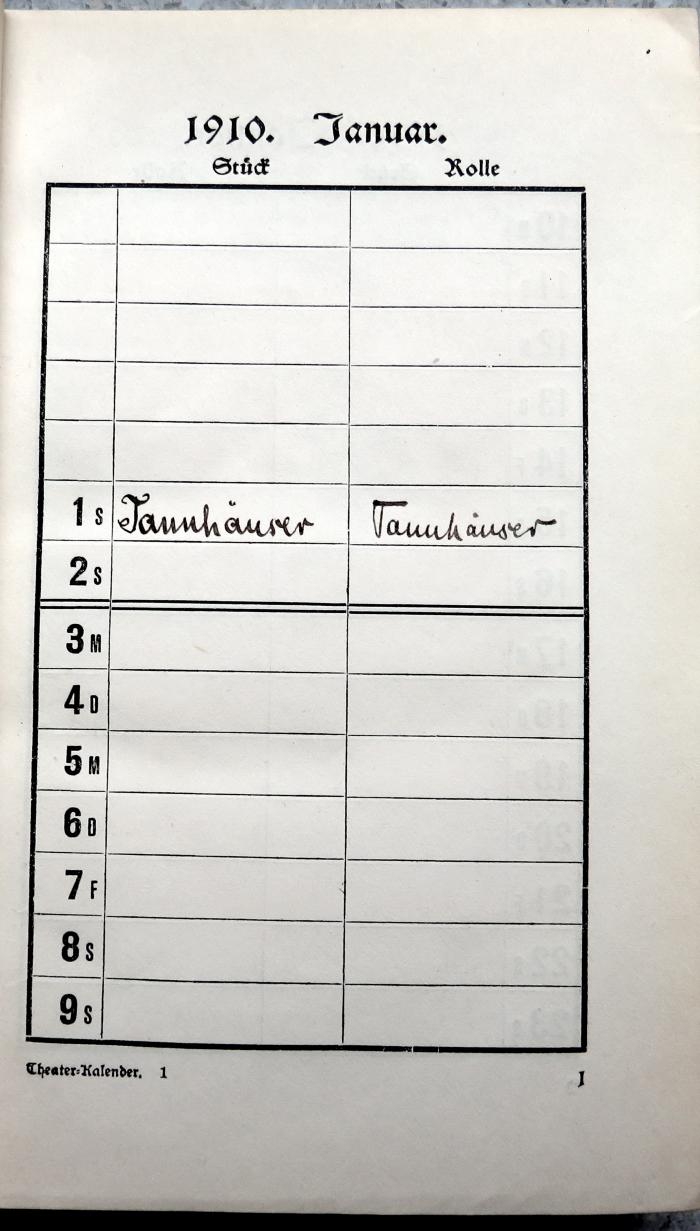 1910. Januar.
Stück Rolle
1 S Tannhäuser Tannhäuser
2 S
3 M
4 D
5 M
6 D
7 F
8 S
9 S
Theater-Kalender. 1 I